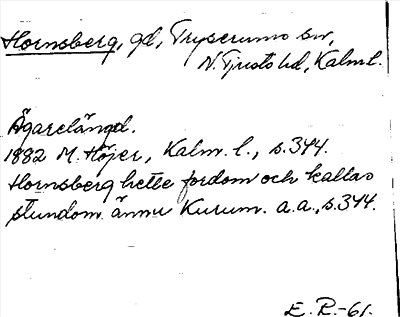 Hornsberg, gd, Tryserums sn,
N. Tjusts hd, Kalm. l.
Ägarelängd.
1882 M. Höjer, Kalm. l., s. 344.
Hornsberg hette fordom och kallas
stundom ännu Kurum. a.a., s. 344.
E. R.-61.